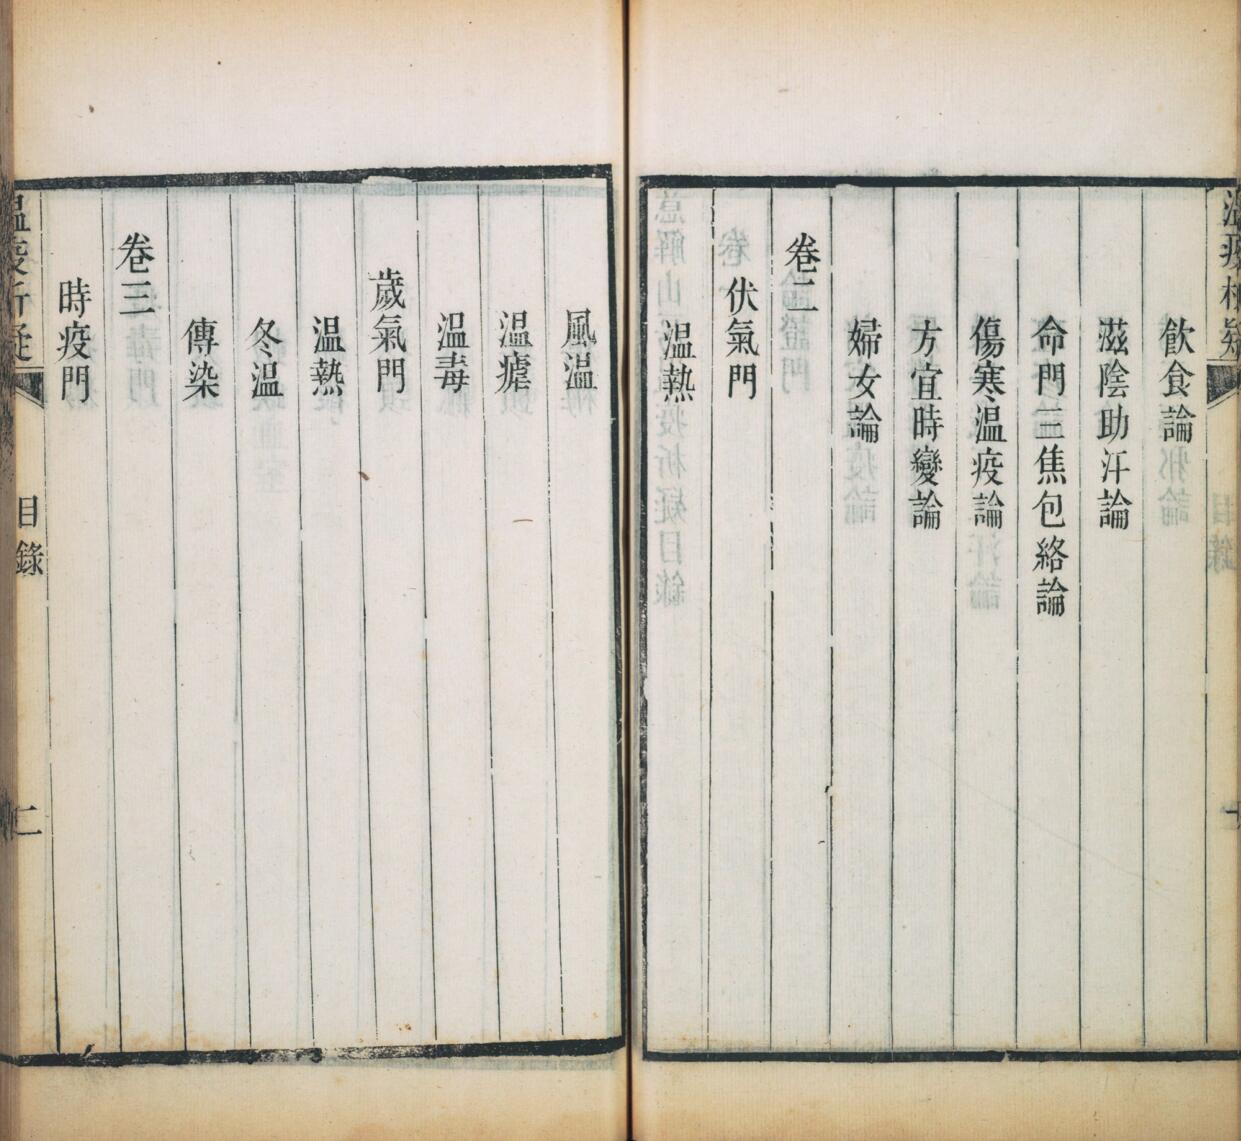 飲食論
滋陰助汗論
命門三焦包絡論
傷寒温疫論
方宜時變論
婦女論
卷二
伏氣門
温熱
風温
温瘧
温毒
歲氣門
温熱
冬温
傳染
卷三
時疫門
温疫析疑
目錄
二